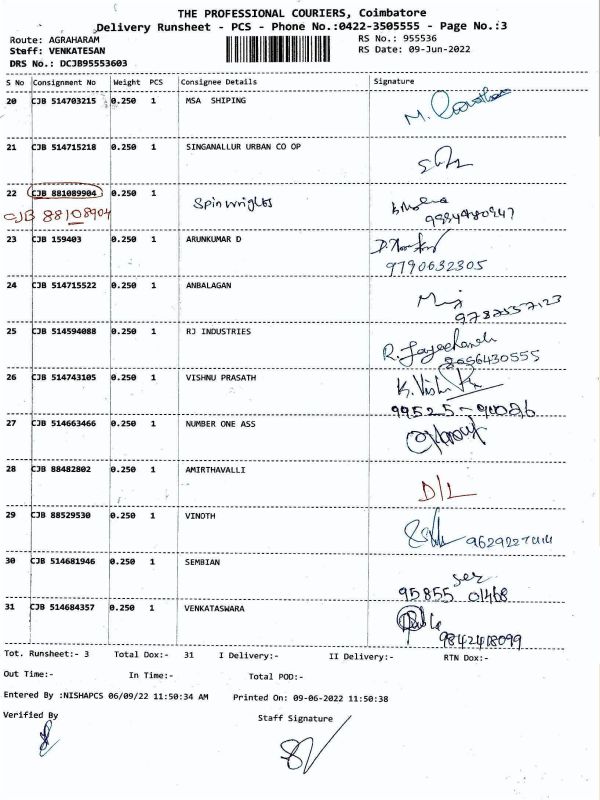 THE PROFESSIONAL COURIERS, Coimbatore
Delivery Runsheet - PCS - Phone No.:0422-3505555 - Page No.:3
Route: AGRAHARAM RS No.: 955536
Staff: VENKATESAN RS Date: 09-Jun-2022
DRS No.: DCJB95553603
S No Consignment No Weight PCS Consignee Details Signature
20 CJB 514703215 0.250 1 MSA SHIPING
21 CJB 514715218 0.250 1 SINGANALLUR URBAN CO OP
22 CJB 881089904 0.250 1 Spinwrights
CJB 88108904
23 CJB 159403 0.250 1 ARUNKUMAR D
9790632305
24 CJB 514715522 0.250 1 ANBALAGAN
9787557123
25 CJB 514594088 0.250 1 RJ INDUSTRIES
R. Jayachandran
8056430555
26 CJB 514743105 0.250 1 VISHNU PRASATH
K. Vishnu
99525-94026
27 CJB 514663466 0.250 1 NUMBER ONE ASS
28 CJB 88482802 0.250 1 AMIRTHAVALLI
D/L
29 CJB 88529530 0.250 1 VINOTH
30 CJB 514681946 0.250 1 SEMBIAN
95855 01468
31 CJB 514684357 0.250 1 VENKATASWARA
9842418099
Tot. Runsheet:- 3 Total Dox:- 31 I Delivery:- II Delivery:- RTN Dox:-
Out Time:- In Time:- Total POD:-
Entered By :NISHAPCS 06/09/22 11:50:34 AM Printed On: 09-06-2022 11:50:38
Verified By Staff Signature